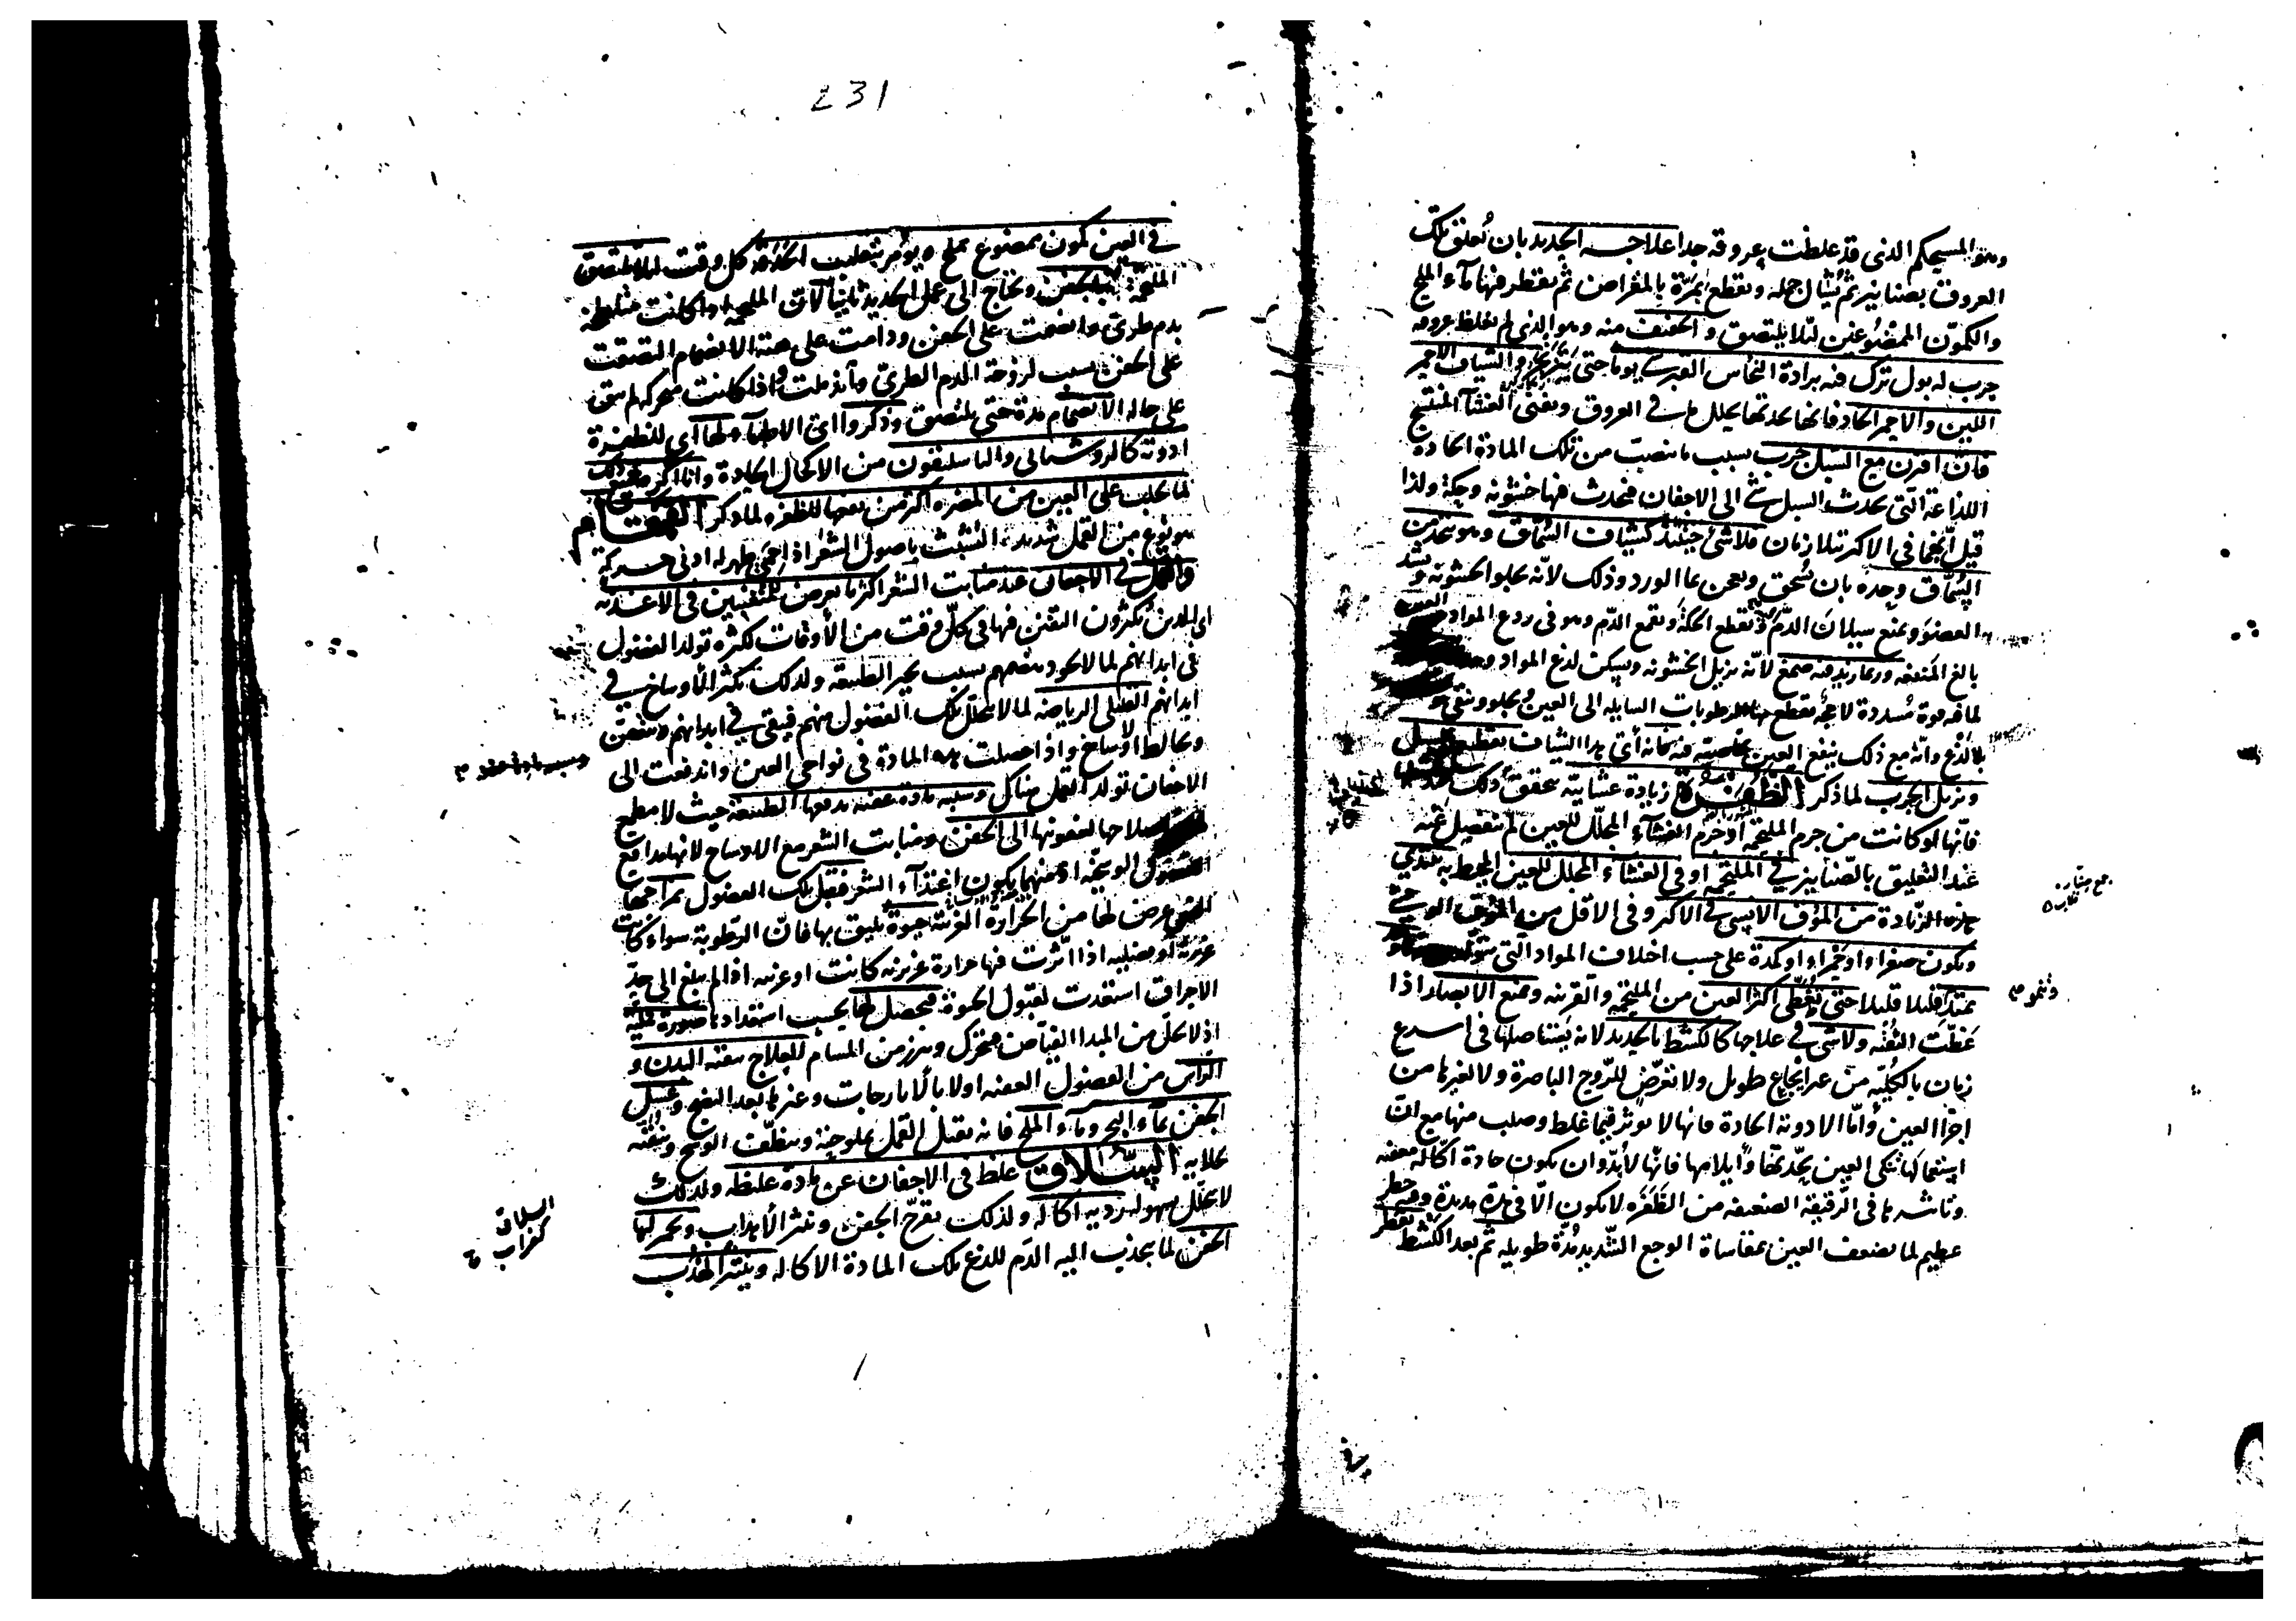 وهو المسيحكم الذي قد غلظت عروقه جدا علاجه الحديد بان تُعلق تلك
العروق بصنانير ثم يُشال جمله وتقطع بمَرّة بالمقراض ثم يقطر فيها ماء الملح
والكمّون الممضوغين لئلا يلتصق والخفيف منه وهو الذي لم تغلظ عروقه
جرب له بول ترك فيه برادة النحاس القبرسي يوما حتى والشياف الاحمر
اللين والاحمر الحاد فانها بحدتها يحلل ما في العروق وتفنى الغشاء المنتسج
فان اقترن مع السبل جرب بسبب ما ينصب من تلك المادة الحادة
اللذاعة التي تحدث السبل شئ الى الاجفان فيحدث فيها خشونه وحكة ولذا
قيل انهما في الاكثر يتلازمان فلا شئ حينئذ كشياف السُمّاق وهو يتخذ من
السُمّاق وحده بان يُسحق ويعجن بماء الورد وذلك لانّه يجلو الخشونه ويشد
العضو ويمنع سيلان الدَّم ويقطع الحكة ويقمع الدّم وهو في ردع المواد
بالغ المنفعه وربما زيد فيه صمغ لانّه يزيل الخشونه ويسكن لذع المواد
لما فيه قوة مُسددة لاحجة يقطع بها الرطوبات السايله الى العين يجلو وينقي
بلا لذع وانّه مع ذلك ينفع العين بخاصيته فيه فانه أي هذا الشياف يقطع السبل
ويزيل الجرب لما ذكر الظفرة زيادة غشائيّه
فانّها لو كانت من جرم الملتحمة او جرم الغشاء المجلّل للعين لم تنفصل عنه
عند التعليق بالصّنانير في الملتحمه او في الغشاء المجلل للعين المحيط به يبتدي
هذه الزيادة من المؤق الانسي في الاكثر وفي الاقل من المؤق الوحشي
ويكون صفراء او حمراء او كمدة على حسب اختلاف المواد التي تتولد
يمتد قليلا قليلا حتى تغطّي اكثر العين من الملتحمه والقرنيه ويمنع الابصار اذا
غطّت الثقبه ولا شئ في علاجها كالكشط بالحديد لانه يستاصلها في اسرع
زمان بالكليّه من غير ايجاع طويل ولا تعرّض للرّوح الباصرة ولا لغيرها من
اجزا العين وأمّا الادوية الحادة فانها لا توثر فيما غلظ وصلب منها مع انّ
استعمالها ينكي العين بحدّتها وايلامها فانّها لا بدّ وان يكون حادة اكّاله معفنه
وتاثيرها في الرقيقه الضعيفه من الظفره لا يكون الّا في مدّة مديدة وفيه خطر
عظيم لما يضعف العين بمقاساة الوجع الشديد مُدّة طويله ثم بعد الكشط يقطر
جمع صناره
وينمو
231
في العين كمون ممضوغ بملح ويؤمر بتقليب الحدقة كل وقت لئلا يلتصق
الملتحمة بالجفن ويحتاج الى عمل الحديد ثانيا لانّ الملتحمه اذا كانت متلطخة
بدم طريّ وانضمت على الجفن ودامت على هيئة الانضمام التصقت
على الجفن بسبب لزوجة الدم الطريّ واندملت واذا كانت متحركه لم يبق
على حالة الانضمام مدة حتى يلتصق وذكروا اي الاطباء لها اي للظفرة
ادوية كالروشنائي والباسليقون من الاكحال الحادة وانا اكره ذلك
لما يجلب على العين من المضرة اكثر من نفعها للظفره لما ذكر القمقام
هو نوع من القمل شديد التشبث باصول الشعر اذا حمي ظهر له ادنى حركة
والقمل في الاجفان عند منابت الشعر اكثر ما يعرض للمتفنين في الاغذيه
اي الذين يُكثرون التفنن فيها في كلّ وقت من الأوقات لكثرة تولد الفضول
في ابدانهم لما لا يجود هضمهم بسبب تحير الطبيعه ولذلك يكثر الأوساخ في
ابدانهم القليلي الرياضه لما لا يتحلل تلك الفضول منهم فيبقى في ابدانهم ويتعفن
ويخالط الاوساخ واذا حصلت هذه المادة في نواحي العين واندفعت الى
الاجفان تولد القمل هناك وسببه مادة عفنه يدفعها الطبيعه حيث لا مطمع
اصلاحها لعفونتها الى الجفن ومنابت الشعر مع الاوساخ لانها مدافع
الفضول الوسخة اذ منها يكون اغتذاء الشعر فيقبل تلك الفضول بمزاجها
الذي عرض لها من الحرارة الغريبة حيوة يليق بها فانّ الرطوبة سواء كانت
غريزيه أو فضليه اذا اثّرت فيها حرارة غريزيه كانت او غريبه اذا لم يبلغ الى حدّ
الاحراق استعدت لقبول الحيوة فيحصل لها بحسب استعدادها صورة قمليّة
اذ لا بخل من المبدا الفيّاض فيتحرك ويبرز من المسام العلاج تنقيه البدن و
الرأس من الفضول العفنه اولا بالايارجات وغيرها بعد النضج وغسل
الجفن بماء البحر وماء الملح فانه يقتل القمل بملوحته وينظّف الوسخ وينقّيه
بجلائه السُلاق غلظ في الاجفان عن مادة غليظه ولذلك
لا يتحلّل بسهوله رديه اكاله ولذلك يقرح الجفن وينثر الأهداب ويحمر لها
الجفن لما يجذب اليه الدّم للذع تلك المادة الاكاله وينتثر الهدب
وسببه مادة عفنه
السلاق
كغراب